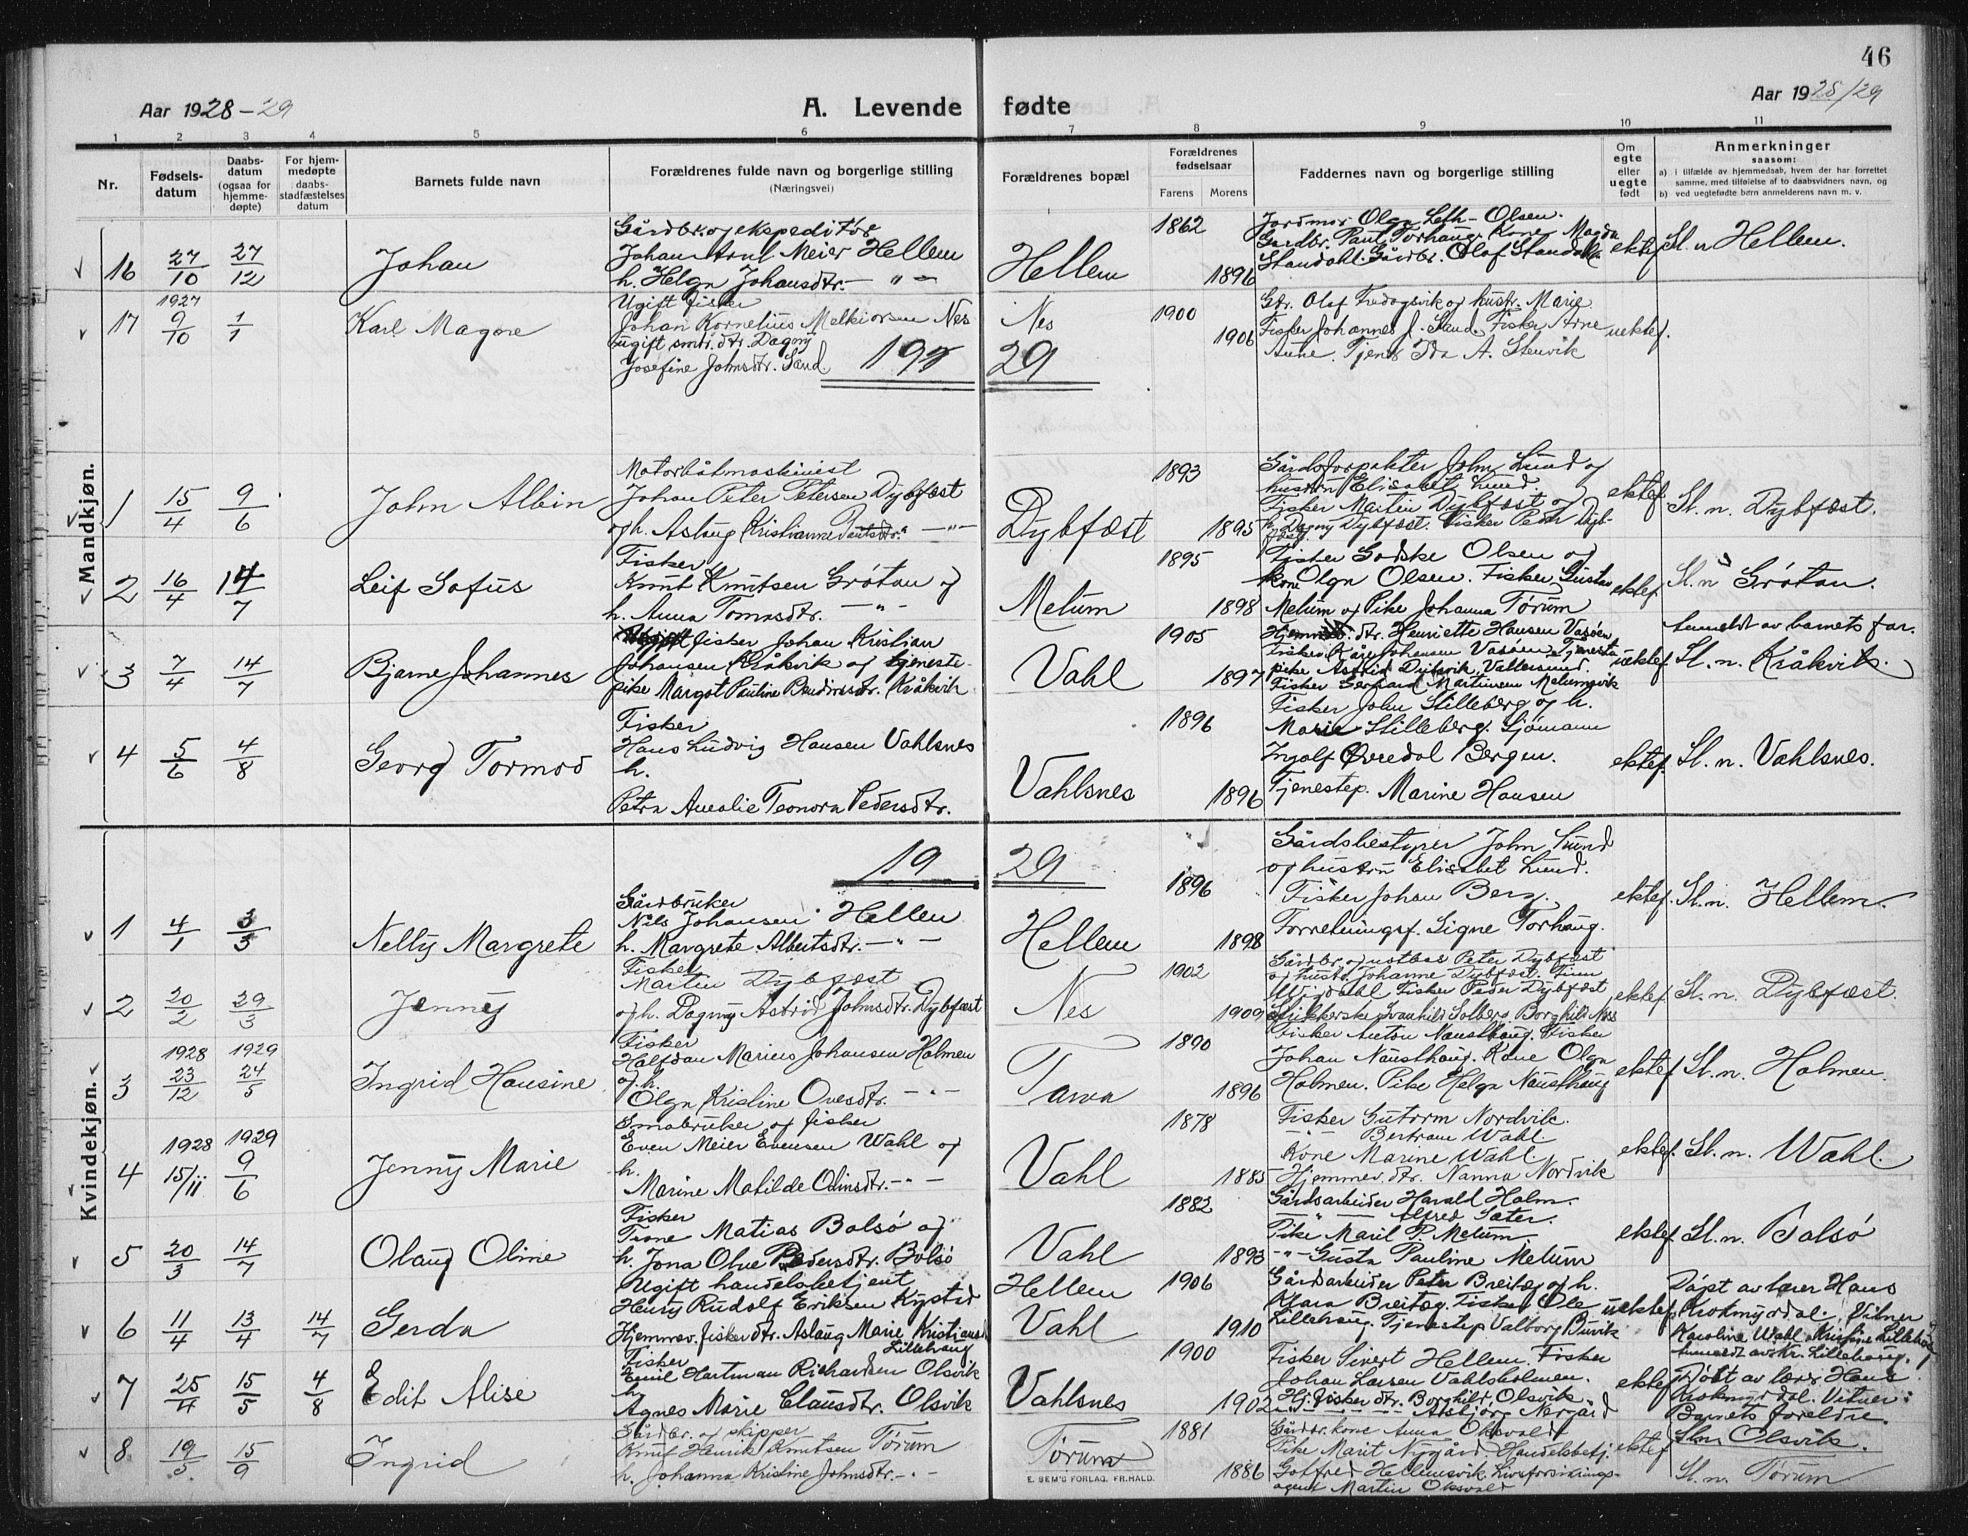 46
Aar 1928-29
A. Levende fødte
Aar 1928/29
1 2 3 4 5 6 7 8 9 10 11
Nr.
Fødsels-
datum
Daabs-
datum
(ogsaa for
hjemme-
døpte)
For hjem-
medøpte
daabs-
stadfæstelses
datum
Barnets fulde navn
Forældrenes fulde navn og borgerlige stilling
(Næringsvei)
Forældrenes bopæl
Forældrenes
fødselsaar
Farens Morens
Faddernes navn og borgerlige stilling
Om
egte
eller
uegte
født
Anmerkninger
saasom:
a) i tilfælde av hjemmedaab, hvem der har forrettet
samme, med tilføielse af to daabsvidners navn, og
b) ved uegtefødte børn anmelderens navn m. v.
Mandkjøn.
16 27/10 27/12 Johan
Gårdbr. og ekspeditør
Johan Arnt Meier Hellem
h. Helga Johansdtr. — " —
Hellem 1862 1896
Jordmor Olga Leth-Olsen.
Gardbr. Paul Torhaug. Kone Magda
Standahl. Gårdbr. Olaf Standahl
ektef. Sl. n Hellem.
17 1927 9/10 1/1 Karl Magne
Ugift fisker
Johan Kornelius Melkiorsen Nes
ugift smbr. dtr. Dagny
Josefine Johnsdtr. Sand.
Nes 1900 1906
Gbr. Olaf Fredagsvik og hustr. Marie
Fisker Johannes J. Sand. Fisker Arne
Aune. Tjenp. Ida A. Stenvik
uektef.
1929
1 15/4 9/6 John Albin
Motorbåtmaskinist
Johan Peter Petersen Dybfæst
og h. Aslaug Kristianne Paulsdtr. — " —
Dybfæst 1893 1895
Gårdsforpakter John Lund og
hustru Elisabet Lund.
Fisker Martin Dybfæst og
h. Dagny Dybfæst. Fisker Peder Dyb-
fæst
ektef. Sl. n. Dybfæst.
2 16/4 14/7 Leif Sofus
Fisker
Knut Knutsen Grøtan og
h. Anna Tomasdtr. — " —
Melum 1895 1898
Fisker Godske Olsen og
kone Olga Olsen. Fisker Gustav
Melum og Pike Johanna Tørum
ektef. Sl. n Grøtan.
3 7/4 14/7 Bjarne Johannes
fisker Johan Kristian
Johansen Kråkvik og tjeneste-
pike Margot Pauline Bendiksdtr. Kråkvik
Vahl 1905 1897
Hjemmev. dtr. Henriette Hansen Vasøen
Fisker Kåre Johansen Vasøen. Tjeneste
pike Astrid Dybvik, Vallersund.
Fisker Gerhard Martinsen Melumsvik
uektef. Anmeldt av barnets far.
Sl. n. Kråkvik.
4 5/6 4/8 Georg Tormod
Fisker
Hans Ludvig Hansen Vahlsnes
h.
Petra Amalie Teonora Pedersdtr.
Vahlsnes 1896 1896
Fisker John Stilleberg og h.
Marie Stilleberg. Sjømann
Ingolf Øvredal Bergen.
Tjenestep. Marine Hansen
ektef. Sl. n. Vahlsnes.
1929
Kvindekjøn.
1 4/1 3/3 Nelly Margrete
Gårdbruker
Nils Johansen Hellem
h. Margrete Albertsdtr. — " —
Hellem 1896 1898
Gårdsbestyrer John Lund
og hustru Elisabet Lund.
Fisker Johan Berg.
Forretningsf. Signe Torhaug.
ektef. Sl. n. Hellem.
2 20/2 29/3 Jenny
Fisker
Martin Dybfæst
og h. Dagny Astrid Johnsdtr. Dybfæst
Nes 1902 1909
Gårdbr. og notbas Peter Dybfæst
og hustr. Johanne Dybfæst.
Fisker Peder Dybfæst
Strikkerske Svanhild Solberg Borghild Næss
ektef. Sl. n. Dybfæst.
3 1928 23/12 1929 24/5 Ingrid Hansine
Fisker
Halfdan Marius Johansen Holmen
og h.
Olga Kristine Ovesdtr. — " —
Tarva 1890 1896
Fisker Anton Nausthaug. Fisker
Johan Nausthaug. Kone Olga
Holmen. Pike Helga Nausthaug
ektef. Sl. n. Holmen.
4 1928 15/11 1929 9/6 Jenny Marie
Småbruker og fisker
Even Meier Evensen Wahl og
h.
Marine Matilde Olinsdtr. — " —
Vahl 1878 1885
Fisker Gutorm Nordvik.
— " — Bertram Wahl.
Kone Marine Wahl.
Hjemmev. dtr. Nanna Nordvik
ektef. Sl. n. Wahl.
5 20/3 14/7 Olaug Oline
Fisker
Trone Matias Bolsø og
h. Jona Olve Pedersdtr. Bolsø
Vahl 1882 1893
Gårdsarbeider Harald Holm.
— " — Alfred Sæter.
Pike Maril P. Melum.
— " — Gusta Pauline Melum
ektef. Sl. n. Bolsø
6 11/4 13/4 14/7 Gerda
Ugift handelsbetjent
Henry Rudolf Eriksen Kystad
Hjemmev. fisker dtr. Aslaug Marie Kristiansd.
Lillehaug
Hellem
Vahl 1906 1910
Gårdarbeider Peter Breitæg og h.
Klara Breitæg. Fisker Ole
Lillehaug. Tjenestep Valborg Buvik
uektef. Døpt av lærer Hans
Krokmyrdal. Vitner
Karoline Wahl Kristine Lillehaug
Anmeldt av Kr. Lillehaug.
7 25/4 15/5 4/8 Edit Alise
Fisker
Emil Hartman Rickardsen Olsvik
h
Agnes Marie Clausdtr. Olsvik
Vahlsnes 1900 1902
Fisker Sivert Hellem. Fisker
Johan Larsen Vahlsholmen.
Hj. fisker dtr. Borghild Olsvik
Asbjørg Nergård
ektef. Døbt av lærer Hans
Krokmyrdal. Vitner:
Barnets foreldre.
Sl. n Olsvik.
8 19/3 15/9 Ingrid
Gårdbr. og skipper
Knut Henrik Knutsen Tørum
h. Johanna Kristine Johnsdtr. — " —
Tørum 1881 1886
Gårdbr. kone Anna Oksvold
Pike Marit Nygård, Handelsbetj.
Gotfred Hellemsvik. Livsforsikrings-
agent Martin Oksvold
ektef Sl. n. Tørum
E. SEM'S FORLAG, FR.HALD.